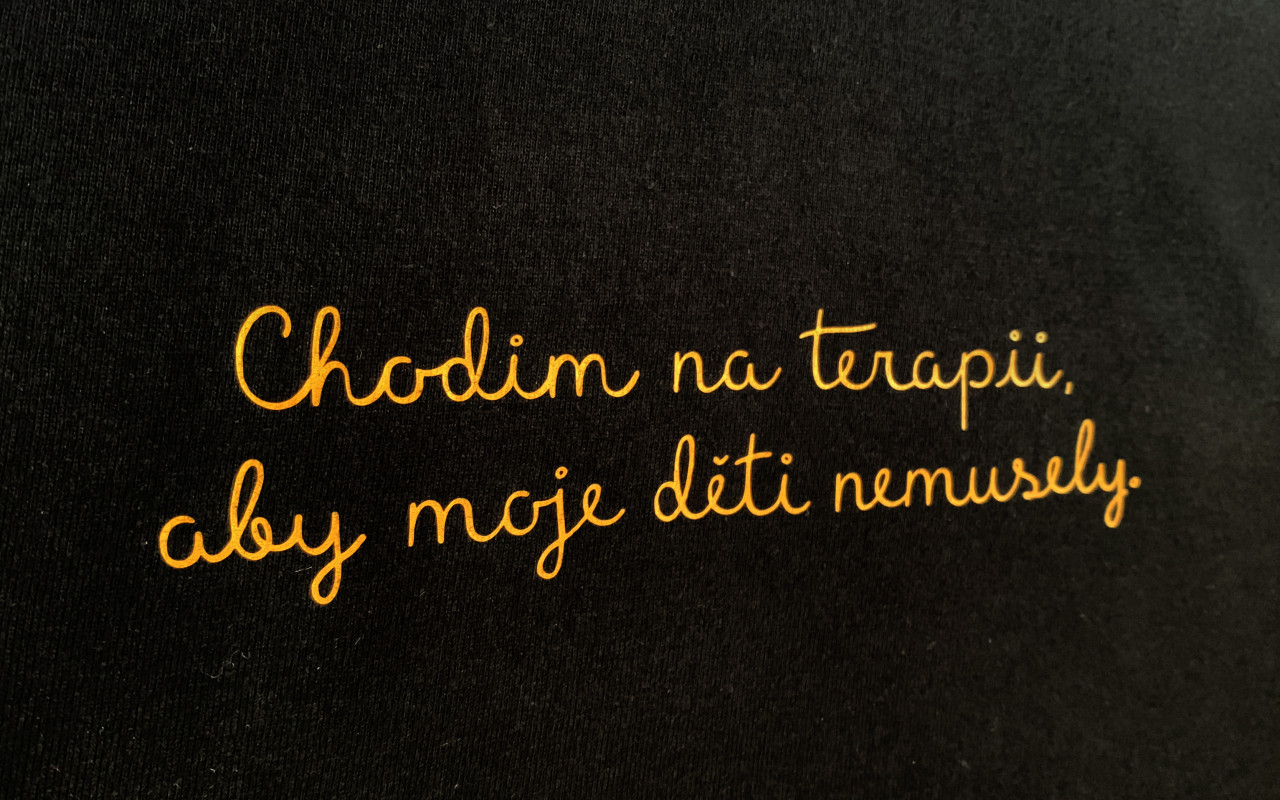 Chodim na terapii,
aby moje děti nemusely.